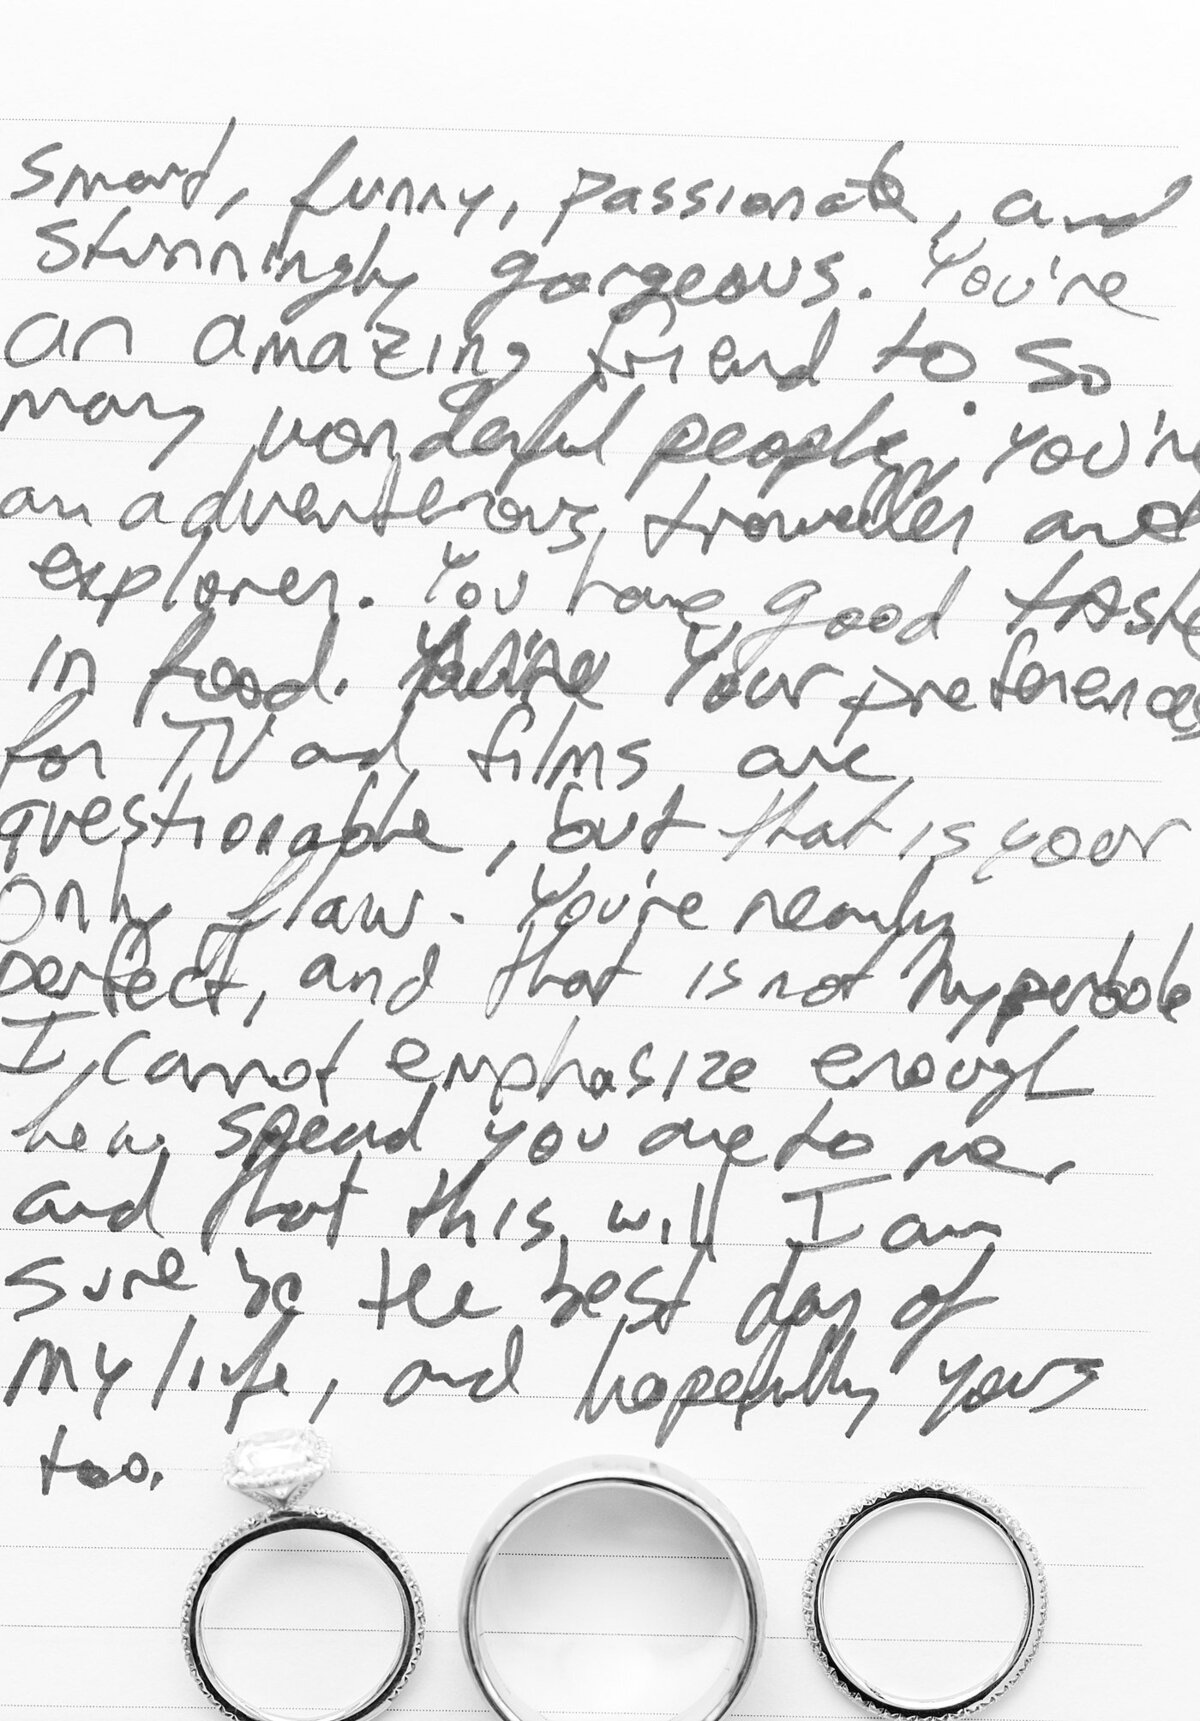 smart, funny, passionate, and
stunningly gorgeous. You're
an amazing friend to so
many wonderful people. You're
an adventerous, traveller and
explorer. You have good taste
in food. You're Your preferences
for TV ad films are
questionable, but that is your
only flaw. You're nearly
perfect, and that is not hyperbole
I cannot emphasize enough
how you are to me,
and that this will I am
sure be the best day of
my life, and hopefully yours
too.